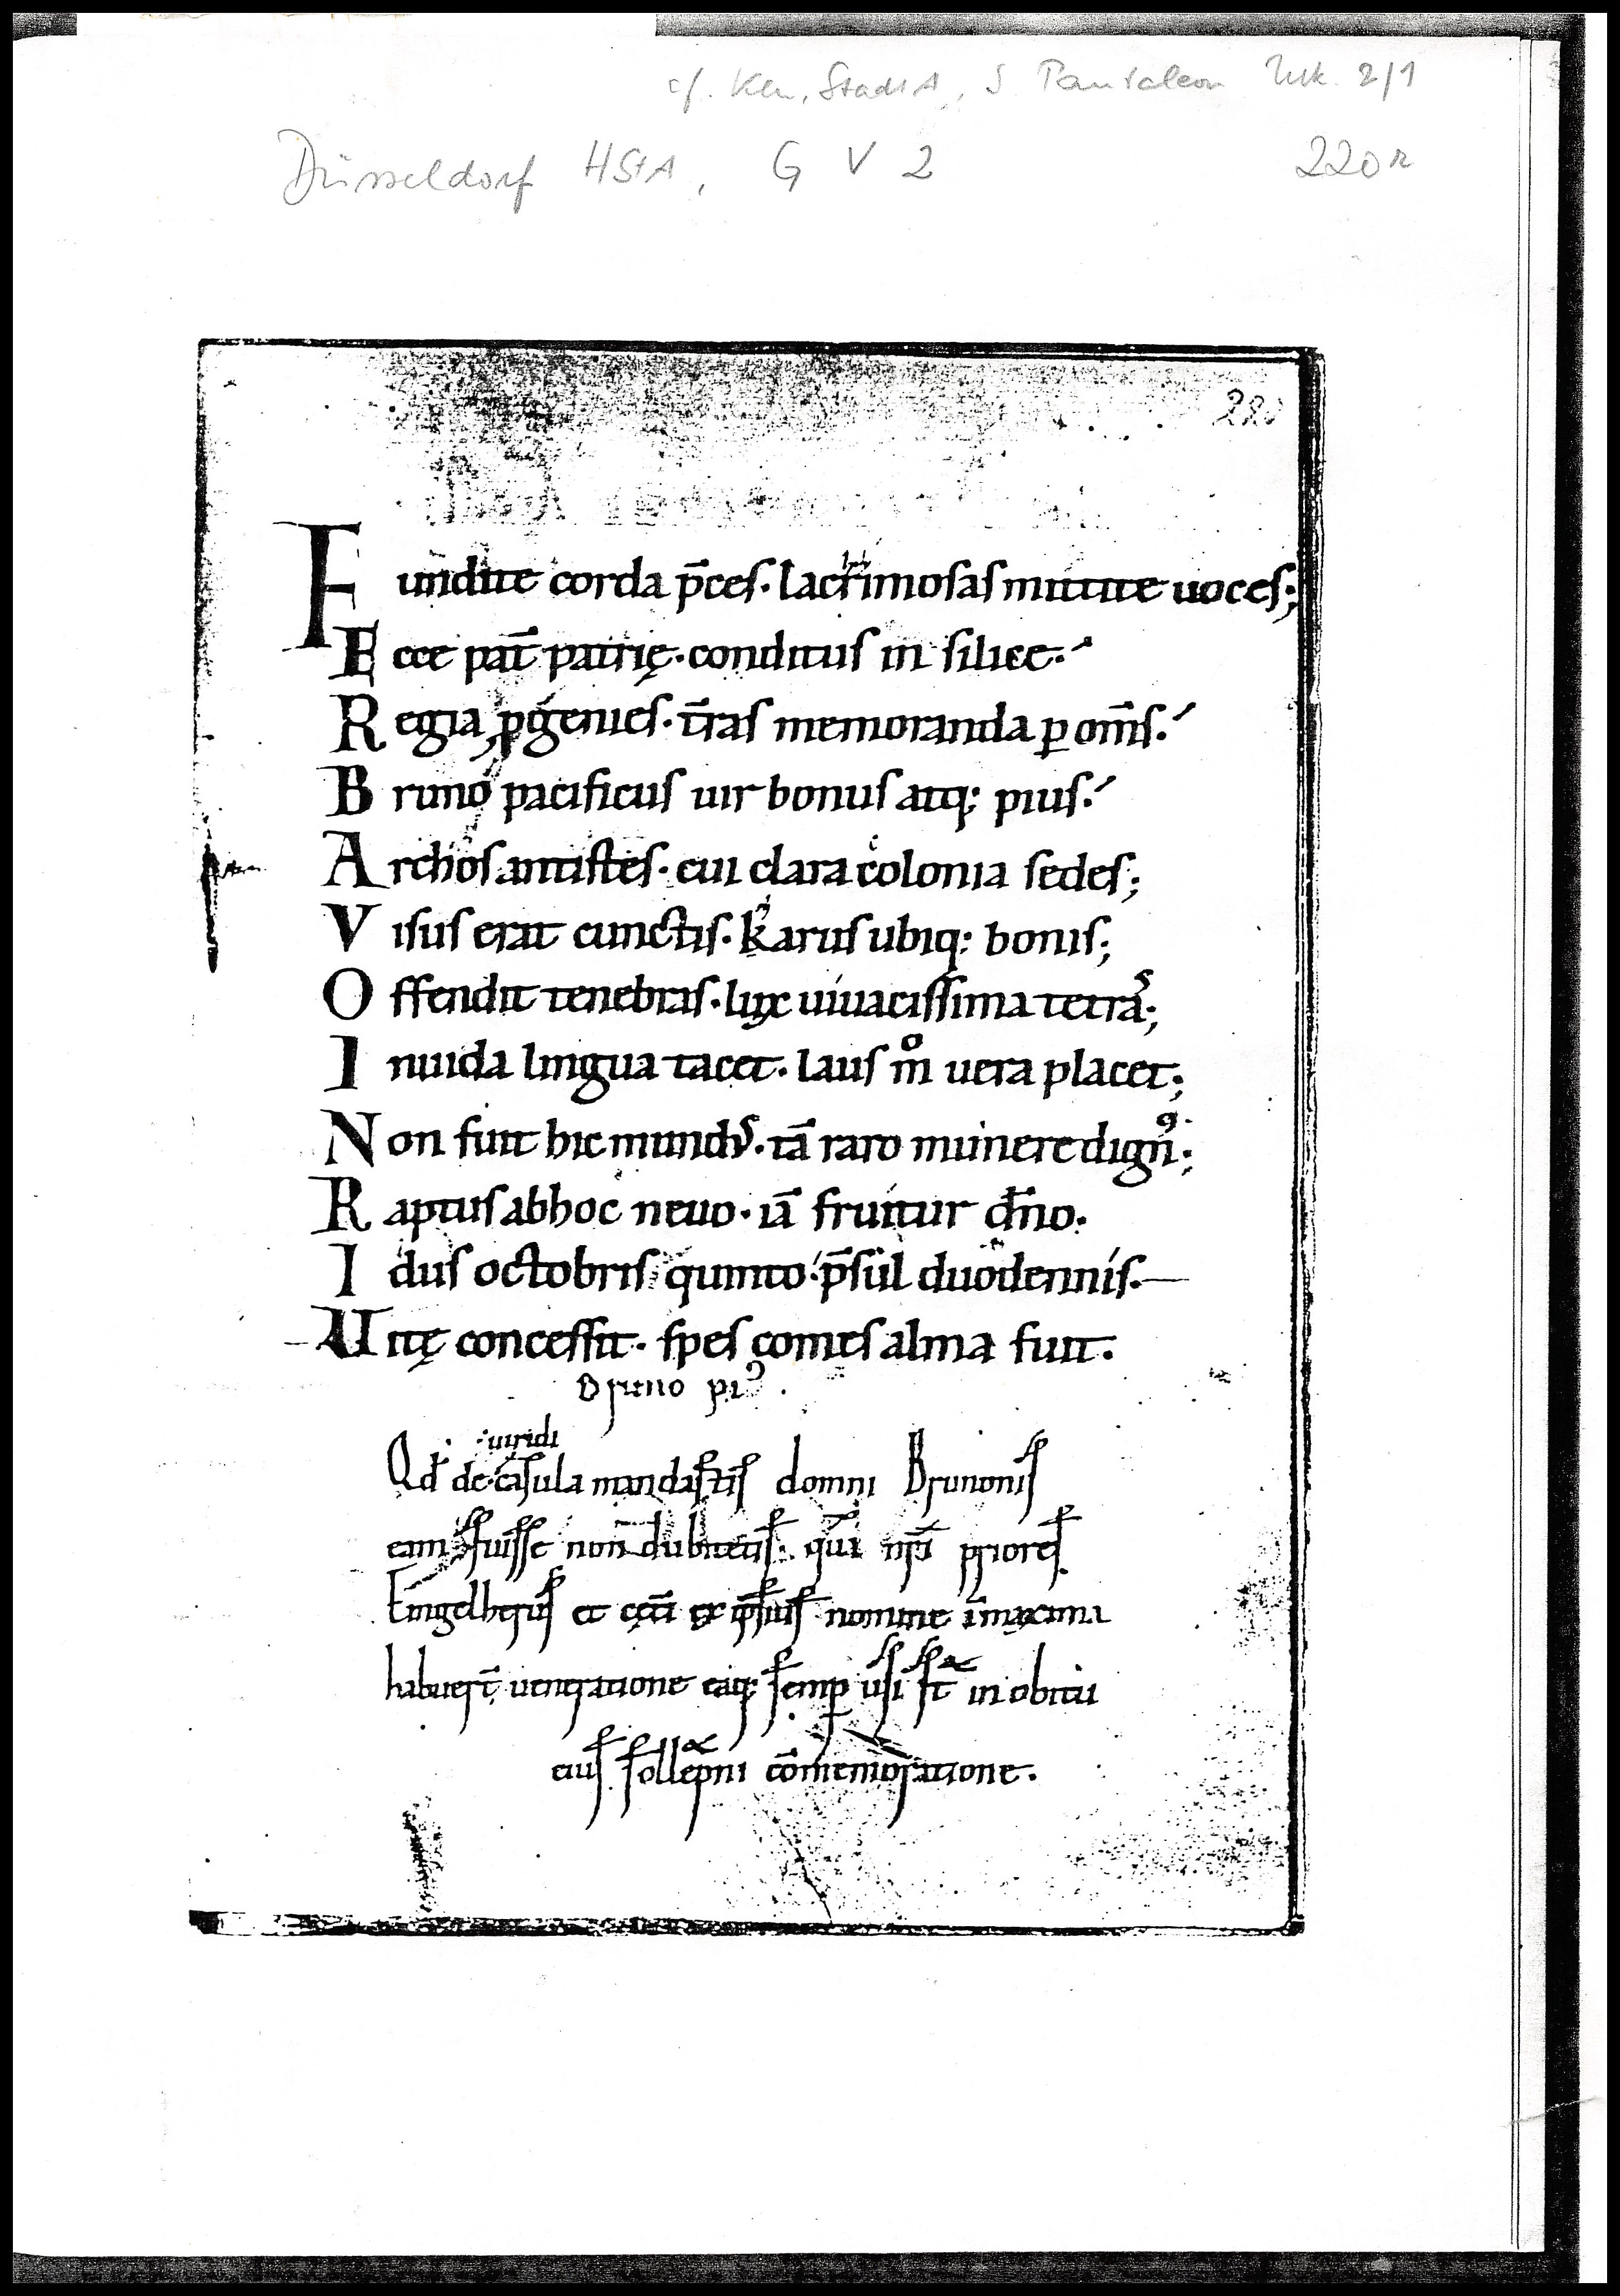 cf. Kln, StadtA, S. Pantaleon Urk. 2/1
Düsseldorf HStA, G V 2 220r
220
Fundite corda p̄ces· lacrimosas mittite uoces;
Ecce pat̄ patrię· conditus in silice·
Regia ꝓgenies· t̄ras memoranda ꝑ om̄s·
Bruno pacificus uir bonus atq; pius·
Archos antistes· cui clara colonia sedes;
Visus erat cunctis· karus ubiq; bonis;
Offendit tenebras· lux uiuacissima tetras;
Inuida lingua tacet· laus m̊ uera placet;
Non fuit hic mundus· tā raro munere dignꝰ;
Raptus ab hoc neuo· iā fruitur dn̄o·
Idus octobris quinto· p̄sul duodennis·
Uitę concessit· spes comes alma fuit·
Bruno piꝰ·
uiridi
Qd̄ de casula mandastis domni Brunonis
eam fuisse non dubitetis· qm̄ nr̄i priores
Engelherius et cęt̄i ex ipsius nomine in maxima
habuer̄t ueneratione eaq; semꝑ usi st̄ in obitu
eius sollepni cōmemoratione·